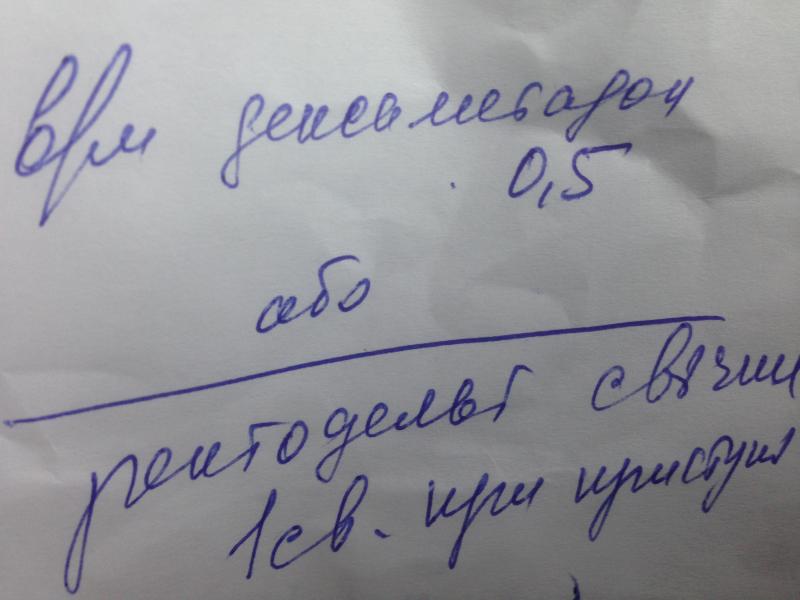 в/м дексаметазон
0,5
або
ректодельт свічки
1св. при приступі